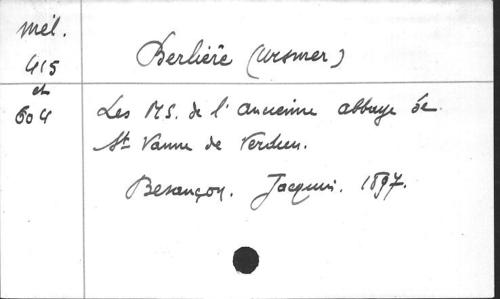 Mél.
415
et
604
Berlière (Ursmer)
Les MS. de l'ancienne abbaye de
St Vanne de Verdun.
Besançon. Jacquin. 1897.